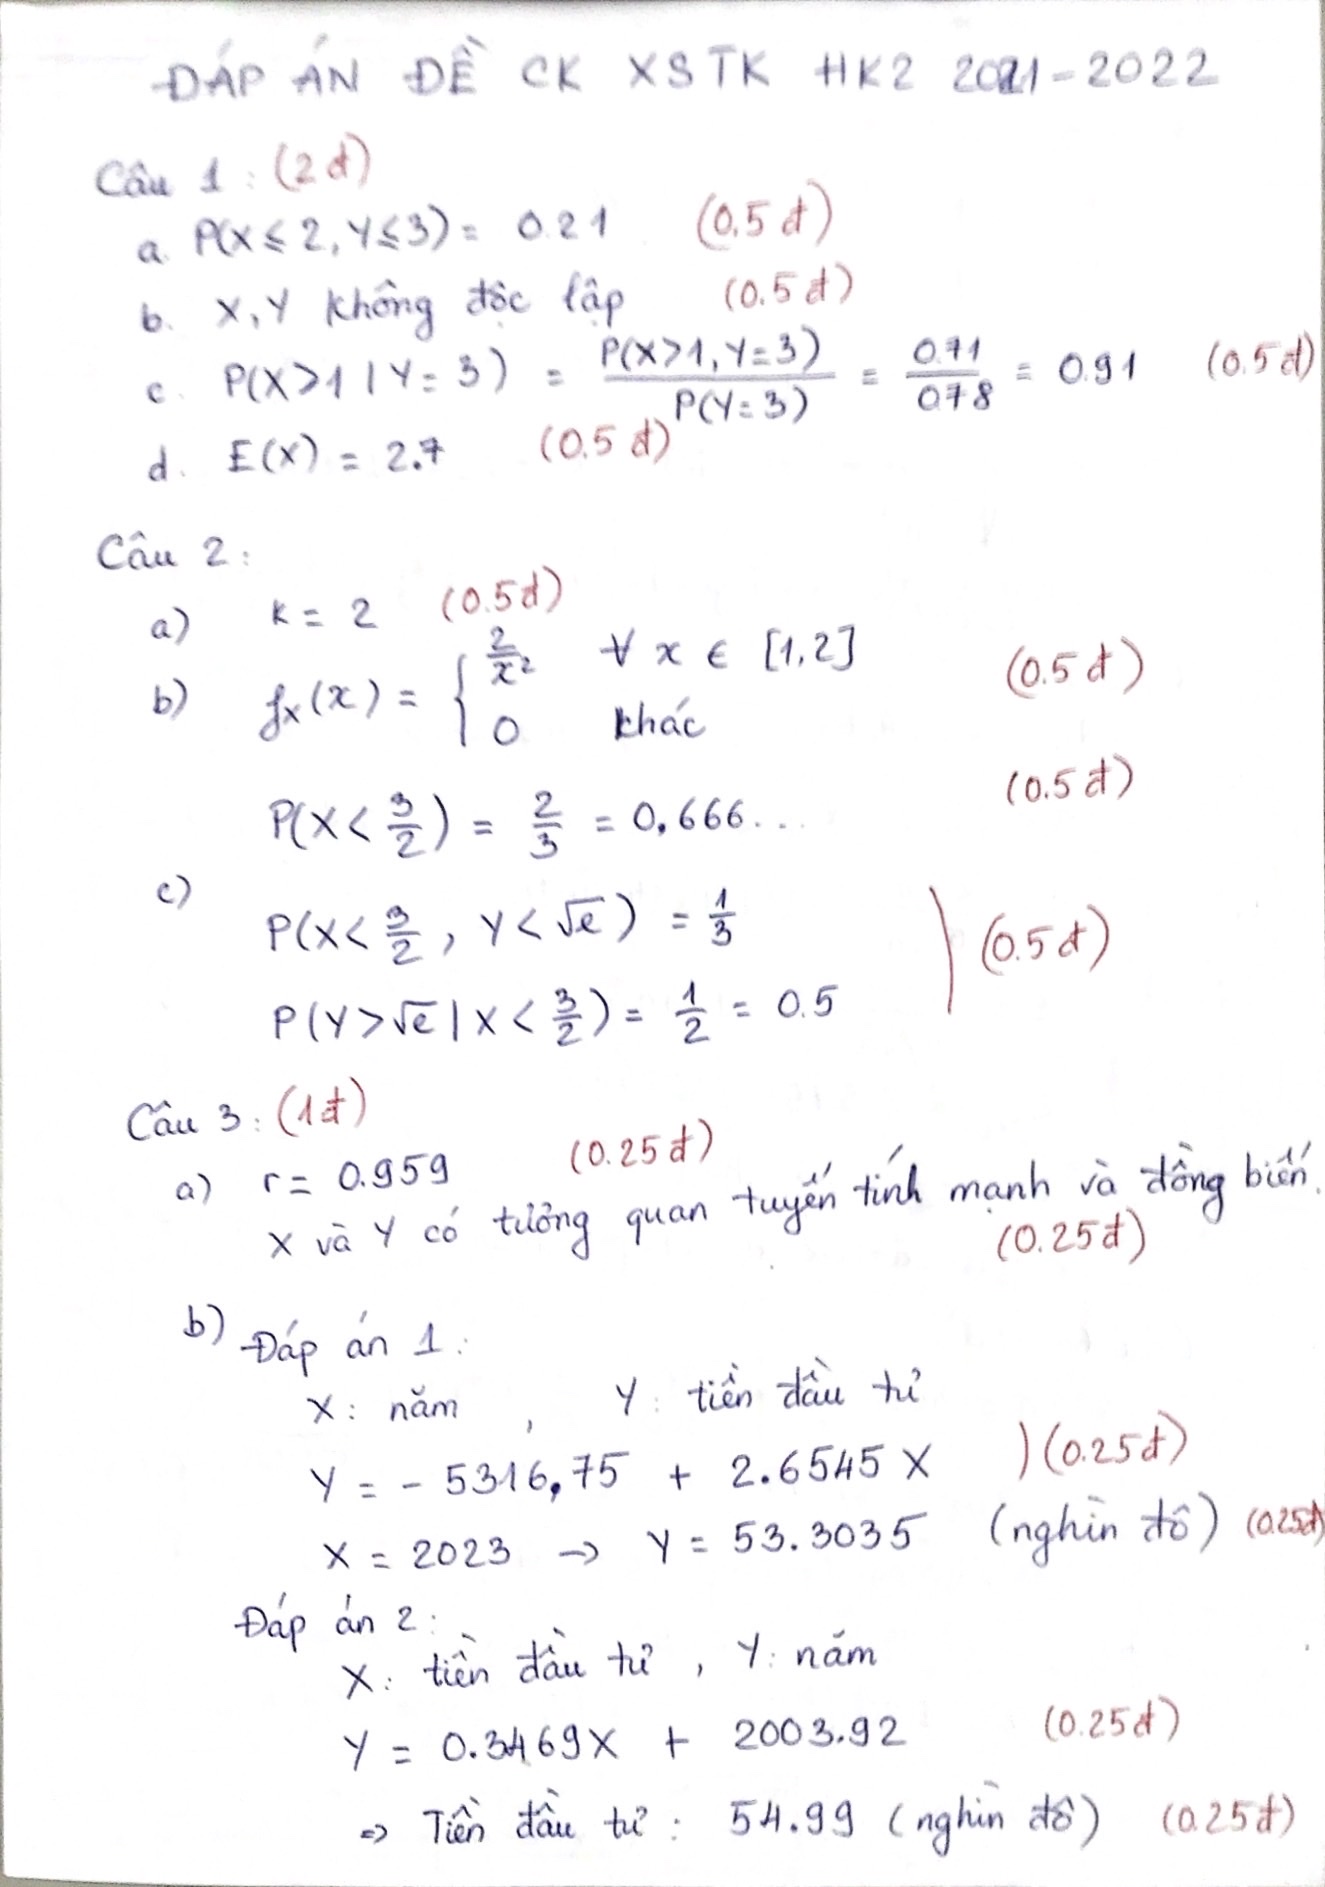 ĐÁP ÁN ĐỀ CK XSTK HK2 2021-2022
Câu 1: (2đ)
a. P(X ≤ 2, Y ≤ 3) = 0.21 (0.5đ)
b. X, Y không độc lập (0.5đ)
c. P(X>1 | Y=3) = P(X>1, Y=3) / P(Y=3) = 0.71 / 0.78 = 0.91 (0.5đ)
d. E(X) = 2.7 (0.5đ)
Câu 2:
a) k = 2 (0.5đ)
b) fx(x) = { 2/x² ∀ x ∈ [1,2] (0.5đ)
0 khác
P(X < 3/2) = 2/3 = 0,666... (0.5đ)
c)
P(X < 3/2, Y < √e) = 1/3
P(Y > √e | X < 3/2) = 1/2 = 0.5 (0.5đ)
Câu 3: (1đ)
a) r = 0.959 (0.25đ)
X và Y có tương quan tuyến tính mạnh và đồng biến.
(0.25đ)
b) Đáp án 1:
X: năm, Y: tiền đầu tư
Y = - 5316,75 + 2.6545 X ) (0.25đ)
X = 2023 → Y = 53.3035 (nghìn đô) (0.25đ)
Đáp án 2:
X: tiền đầu tư, Y: năm
Y = 0.3469X + 2003.92 (0.25đ)
⇒ Tiền đầu tư: 54.99 (nghìn đô) (0.25đ)